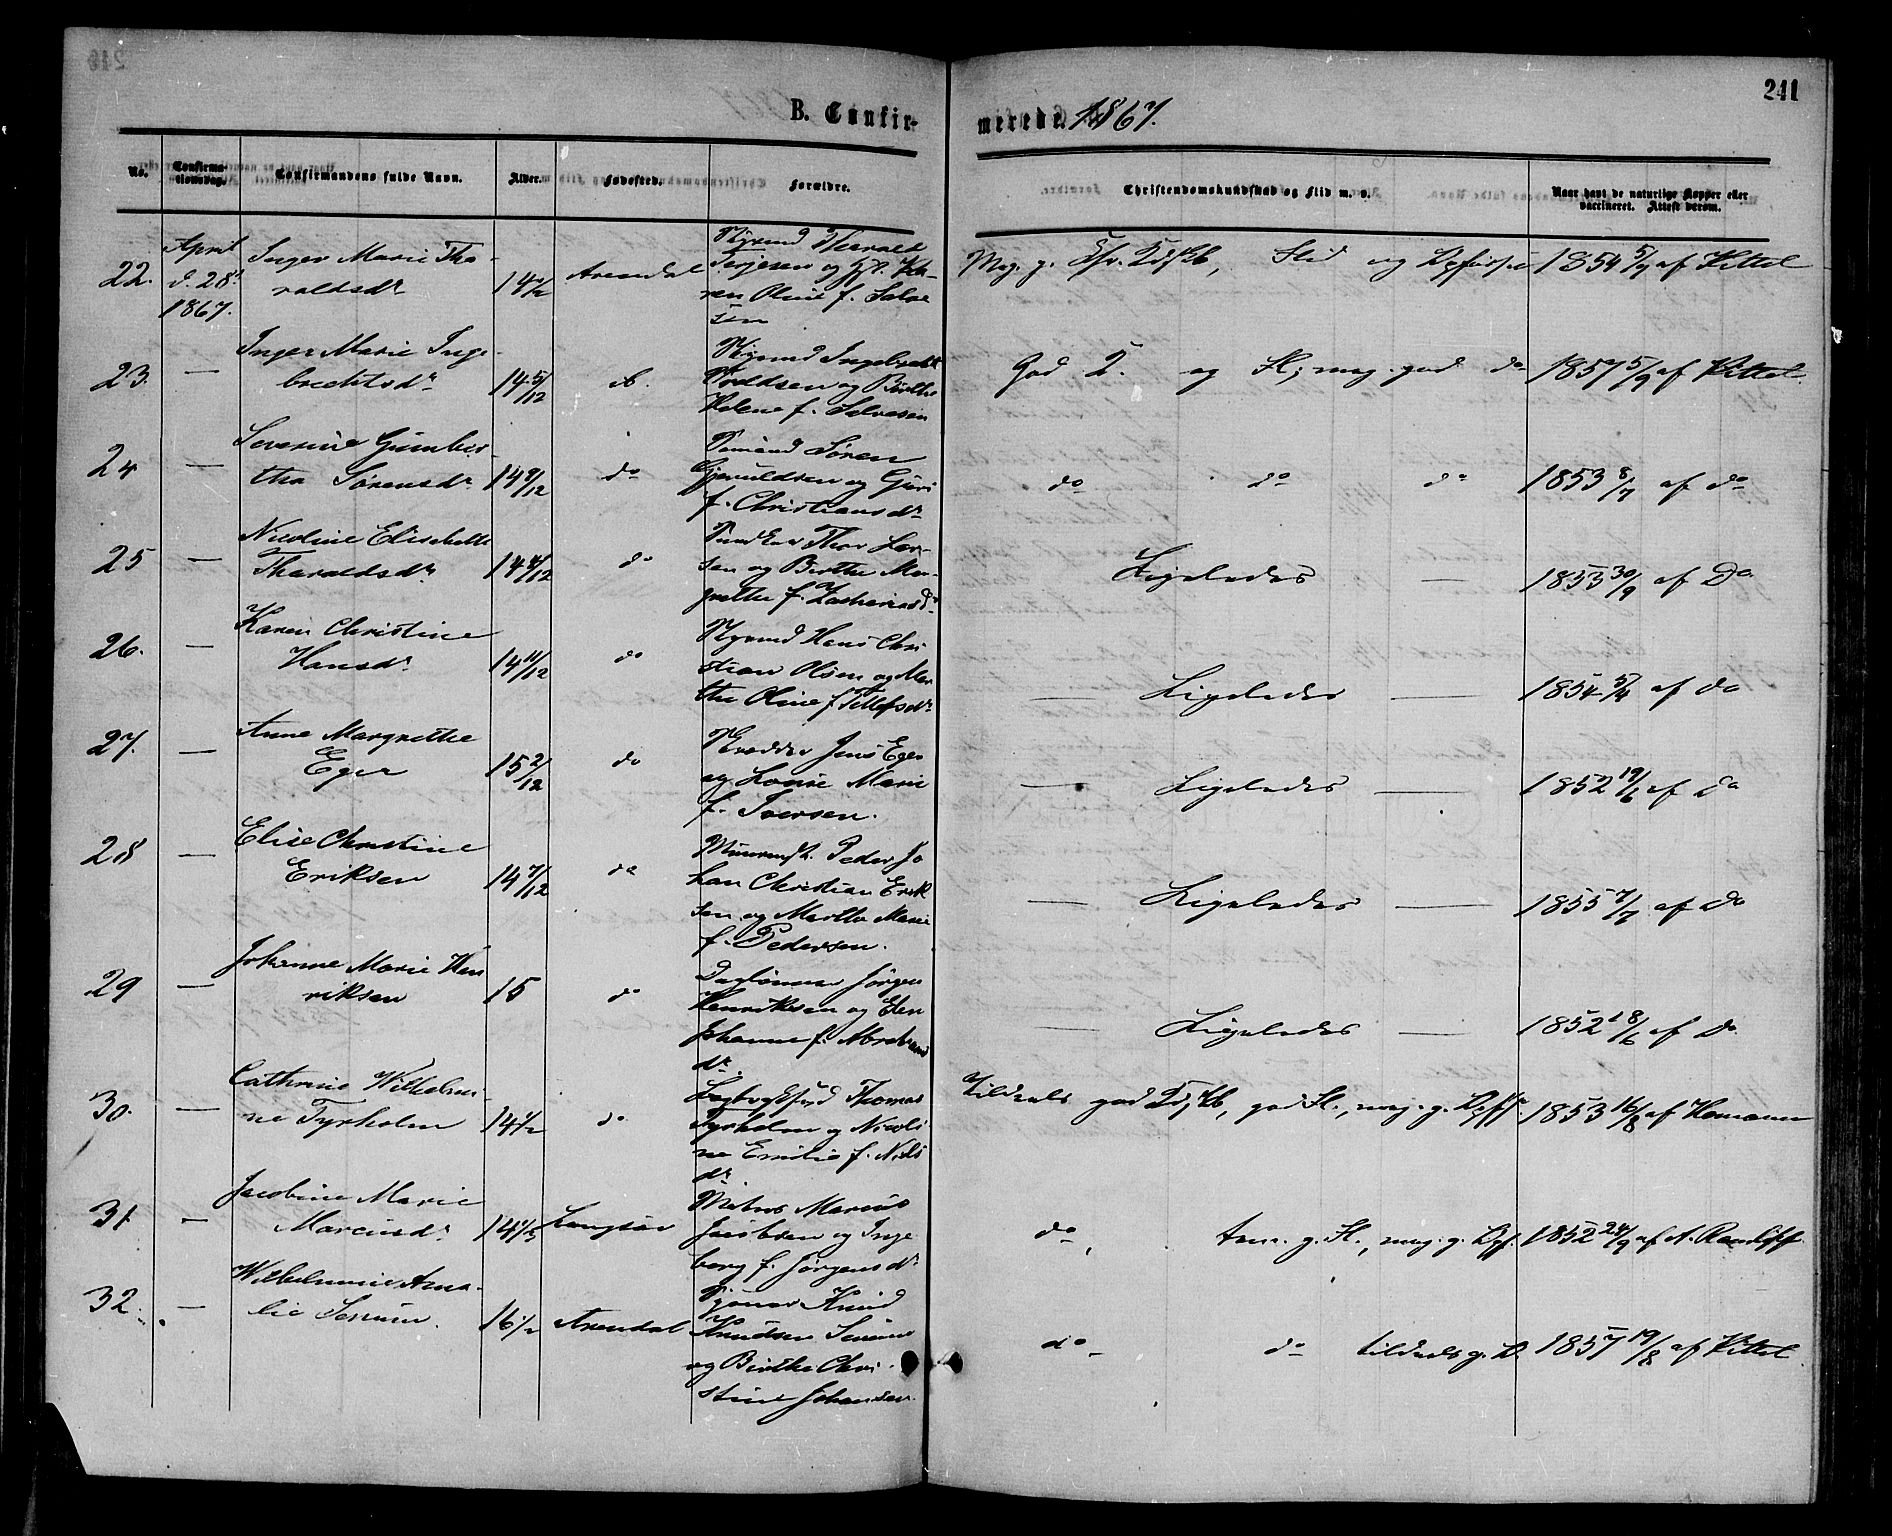 241
B. Confirmerede 1867.
No.
Confirmationsdag.
Confirmandens fulde Navn.
Alder.
Fødested.
Forældre.
Christendomskundskab og Flid m. v.
Naar havt de naturlige Kopper eller
vaccineret. Attest derom.
22. April d. 28d 1867.
Inger Marie Tha-
raldsdr
14 1/2 Arendal
Terjesen og
ren Oline f. Salve
sen
Meg. g. Chr. Kdskb, Flid og Opførsel 1854 5/9 af Kittel
23. — Inger Marie Inge-
brechtsdr
14 5/12 do.
og Birthe
Helene f. Salvesen
God K. og Fl; meg. god do 1857 5/9 af Kittel.
24 — Severine Gumber-
tha Sørensdr
14 9/12 do
Søren
Gjeruldsen og Guri
f. Christiansdr
do do do 1853 8/7 af do
25 — Nicoline Elisebeth
Tharaldsdr
14 4/12 do
Thor Lar-
sen og Birthe Mar-
grethe f. Zachariasdr
Ligeledes — 1853 30/9 af Do
26. — Karen Christine
Hansdr
14 11/12 do
Hans Chri
stian Olsen og Mar
the Oline f. Tellefsdr
— Ligeledes — 1854 5/4 af do
27. — Anne Margrethe
Eger
15 2/12 do
Jens Eger
og Lovise Marie
f. Iversen.
— Ligeledes — 1852 19/6 af do
28 — Elise Christine
Eriksen
14 7/12 do
Peder Jo
han Christian Erik
sen og Marthe Marie
f. Pedersen.
— Ligeledes — 1855 7/7 af do
29 — Johanne Marie Hen
riksen
15 do
Daglønner Jørgen
Henriksen og Elen
Johanne f. Abrahams
dr.
— Ligeledes — 1852 18/6 af Do
30. — Cathrine Wilhelmi-
ne Tyrholm
14 1/2 do
Thomas
Tyrholm og Nicoli
ne Emilie f. Nils
dr
Tildeels god Kdskb, god Fl., meg. g. Opf. 1853 16/8 af Homann
31. — Jacobine Marie
Marcusdr
14 1/2
Matros Marcus
Jacobsen og Inge
borg f. Jørgensdr
do, g. Fl., meg. g. Opf. 1852 24/9 af
32. — Wilhelmine Ama-
lie
16 1/2 Arendal
Knud
Knudsen
og Birthe Chri-
stine Johansen.
do do tildeels g. O. 1857 19/8 af Kittel